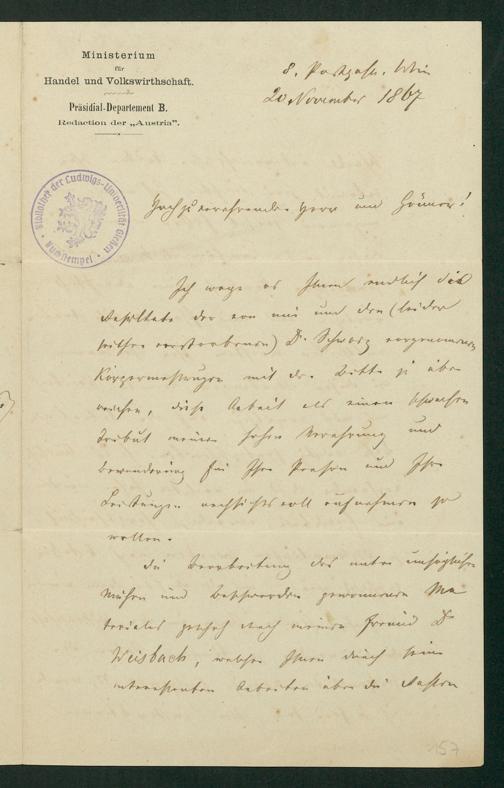 Ministerium
für
Handel und Volkswirthschaft.
Präsidial-Departement B.
Redaction der „Austria“.
8. Postgasse. Wien
20 November 1867
Bibliothek der Ludwigs-Universität Giessen
Hochzuverehrender Herr und Gönner!
Ich wage es Ihnen endlich die
Resultate der von mir und den (leider
seither verstorbenen) Dr. Schwarz vorgenommenen
Körpermessungen mit der Bitte zu über
reichen, diese Arbeit als einen schwachen
Tribut meiner hohen Verehrung und
Bewunderung für Ihre Person und Ihre
Leistungen nachsichtsvoll aufnehmen zu
wollen.
Die Bearbeitung des unter unsäglichen
Mühen und Beschwerden gewonnenen Ma
teriales geschah durch meinen Freund Dr
Weisbach, welcher Ihnen durch seine
interessanten Arbeiten über die
157